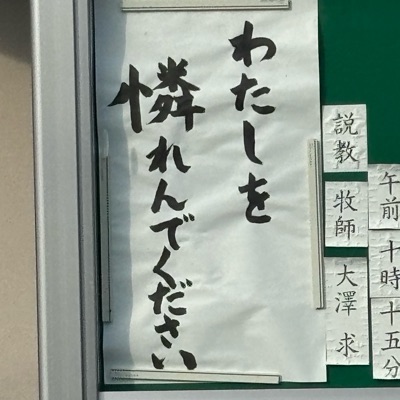 午前十時十五分
説教 牧師 大澤 求
わたしを
憐れんでください